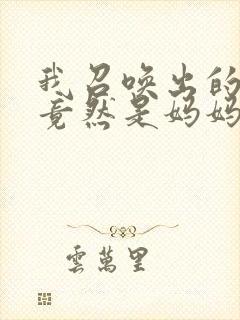 我召唤出的
竟然是妈妈
雲萬里